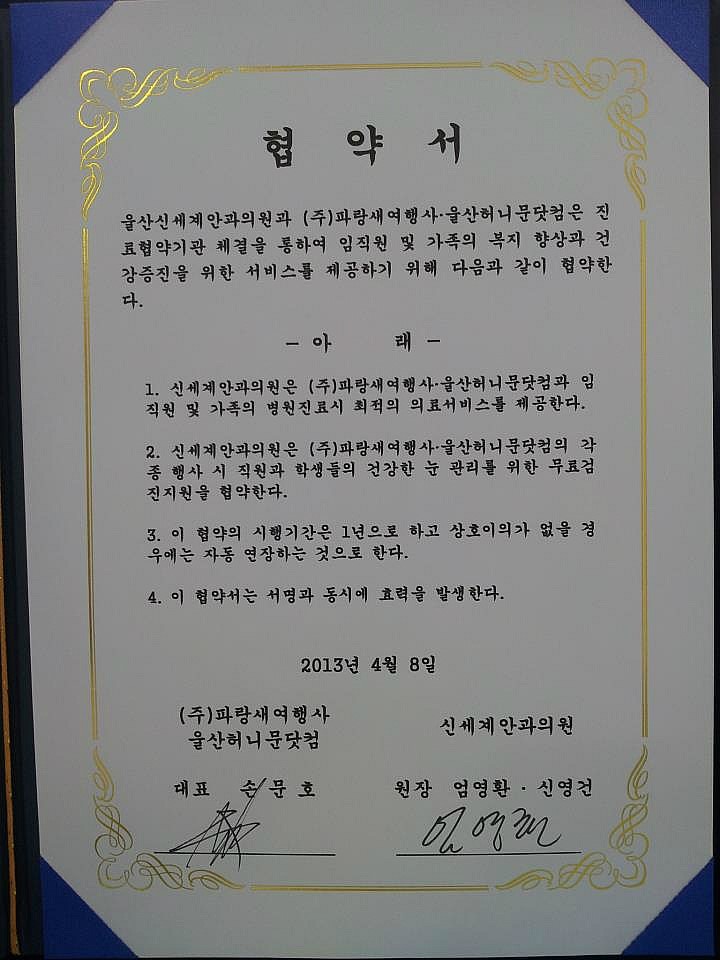 협 약 서
울산신세계안과의원과 (주)파랑새여행사·울산허니문닷컴은 진
료협약기관 체결을 통하여 임직원 및 가족의 복지 향상과 건
강증진을 위한 서비스를 제공하기 위해 다음과 같이 협약한
다.
- 아 래 -
1. 신세계안과의원은 (주)파랑새여행사·울산허니문닷컴과 임
직원 및 가족의 병원진료시 최적의 의료서비스를 제공한다.
2. 신세계안과의원은 (주)파랑새여행사·울산허니문닷컴의 각
종 행사 시 직원과 학생들의 건강한 눈 관리를 위한 무료검
진지원을 협약한다.
3. 이 협약의 시행기간은 1년으로 하고 상호이의가 없을 경
우에는 자동 연장하는 것으로 한다.
4. 이 협약서는 서명과 동시에 효력을 발생한다.
2013년 4월 8일
(주)파랑새여행사
울산허니문닷컴
신세계안과의원
대표 손문호
원장 엄영환 · 신영건
엄영환